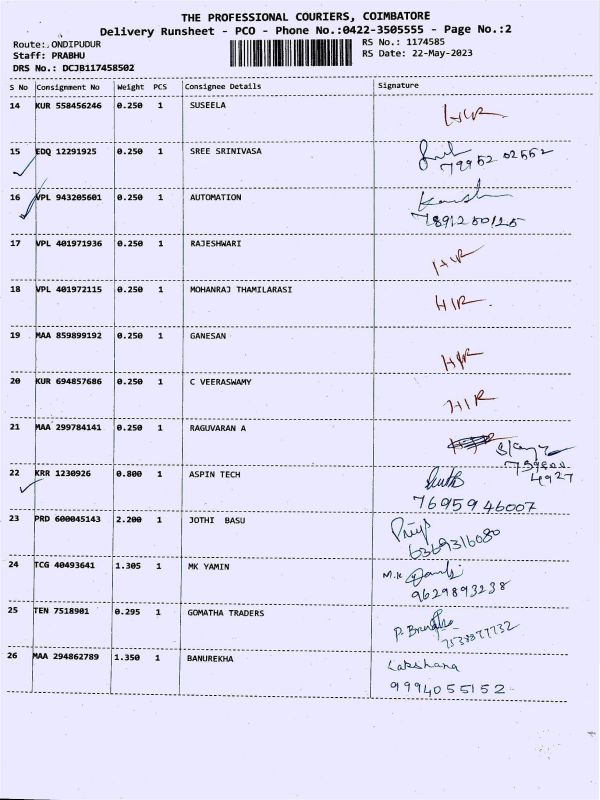 THE PROFESSIONAL COURIERS, COIMBATORE
Delivery Runsheet - PCO - Phone No.:0422-3505555 - Page No.:2
Route: ONDIPUDUR RS No.: 1174585
Staff: PRABHU RS Date: 22-May-2023
DRS No.: DCJB117458502
S No Consignment No Weight PCS Consignee Details Signature
14 KUR 558456246 0.250 1 SUSEELA HIR
15 EDQ 12291925 0.250 1 SREE SRINIVASA
79952 02552
16 VPL 943205601 0.250 1 AUTOMATION
7891250125
17 VPL 401971936 0.250 1 RAJESHWARI HIR
18 VPL 401972115 0.250 1 MOHANRAJ THAMILARASI HIR
19 MAA 859899192 0.250 1 GANESAN HIR
20 KUR 694857686 0.250 1 C VEERASWAMY HIR
21 MAA 299784141 0.250 1 RAGUVARAN A
4927
22 KRR 1230926 0.800 1 ASPIN TECH
7695946007
23 PRD 600045143 2.200 1 JOTHI BASU
6369316080
24 TCG 40493641 1.305 1 MK YAMIN M.K
9629893238
25 TEN 7518901 0.295 1 GOMATHA TRADERS
7538877732
26 MAA 294862789 1.350 1 BANUREKHA Lakshana
9994055152